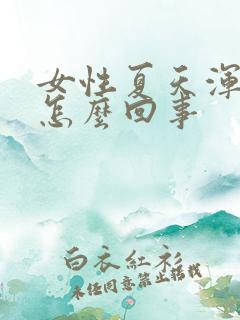 女性夏天渾
怎麼回事
白衣紅衫
未经同意禁止搭载